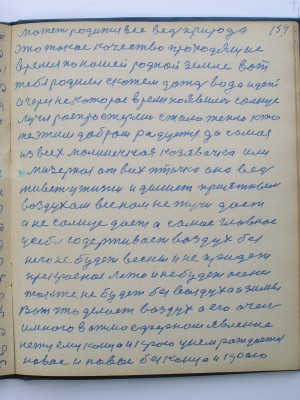 может родится все ведь природа
это такое качество проходящие
время по нашей родной земле вот
тебя родим скажем дождь вода идет
а через некоторое время появился солнце
лучи распростерли стало тепло кто
этим добром радуется да самая
из всех малинечкая козявачка или
мизерная от вих птичка она ведь
живет у жизни и дишет приятным
воздухам весной не тучи дает
а не солнце дает а самое главное
у себя содерживает воздух без
него не будет весны и не прийдет
прекрасное лето и не будет осени
также не будет без воздуха зимы
Вот что делает воздух а его очен
много важное ефирное явление
нету ему конца и краю у нем рождается
новое и новое без конца и краю